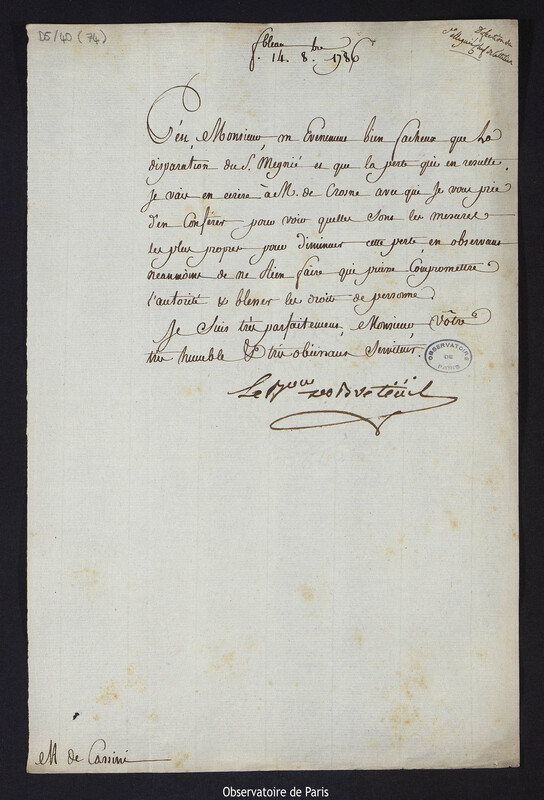 D5/40 (74)
f.bleau 14. 8.bre 1786
C'est, Monsieur, un Evénement bien facheux que La
disparution du S. Megnié et que la perte qui en resulte.
Je vais en ecrire à M. de Crosne avec qui Je vous prie
d'en Conférer pour voir quelles sont les mesures
les plus propres pour diminuer cette perte, en observant
neanmoins de ne Rien faire qui puisse Compromettre
l'autorité & blesser les droits de personne.
Je Suis très parfaitement, Monsieur, Vôtre
très humble & très obéissant Serviteur.
OBSERVATOIRE
DE
PARIS
Le Bon de Breteüil
M de Cassini
Observatoire de Paris